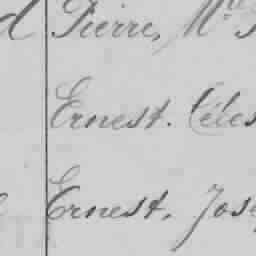 d Pierre, M
Ernest. Céles
Ernest. Jose